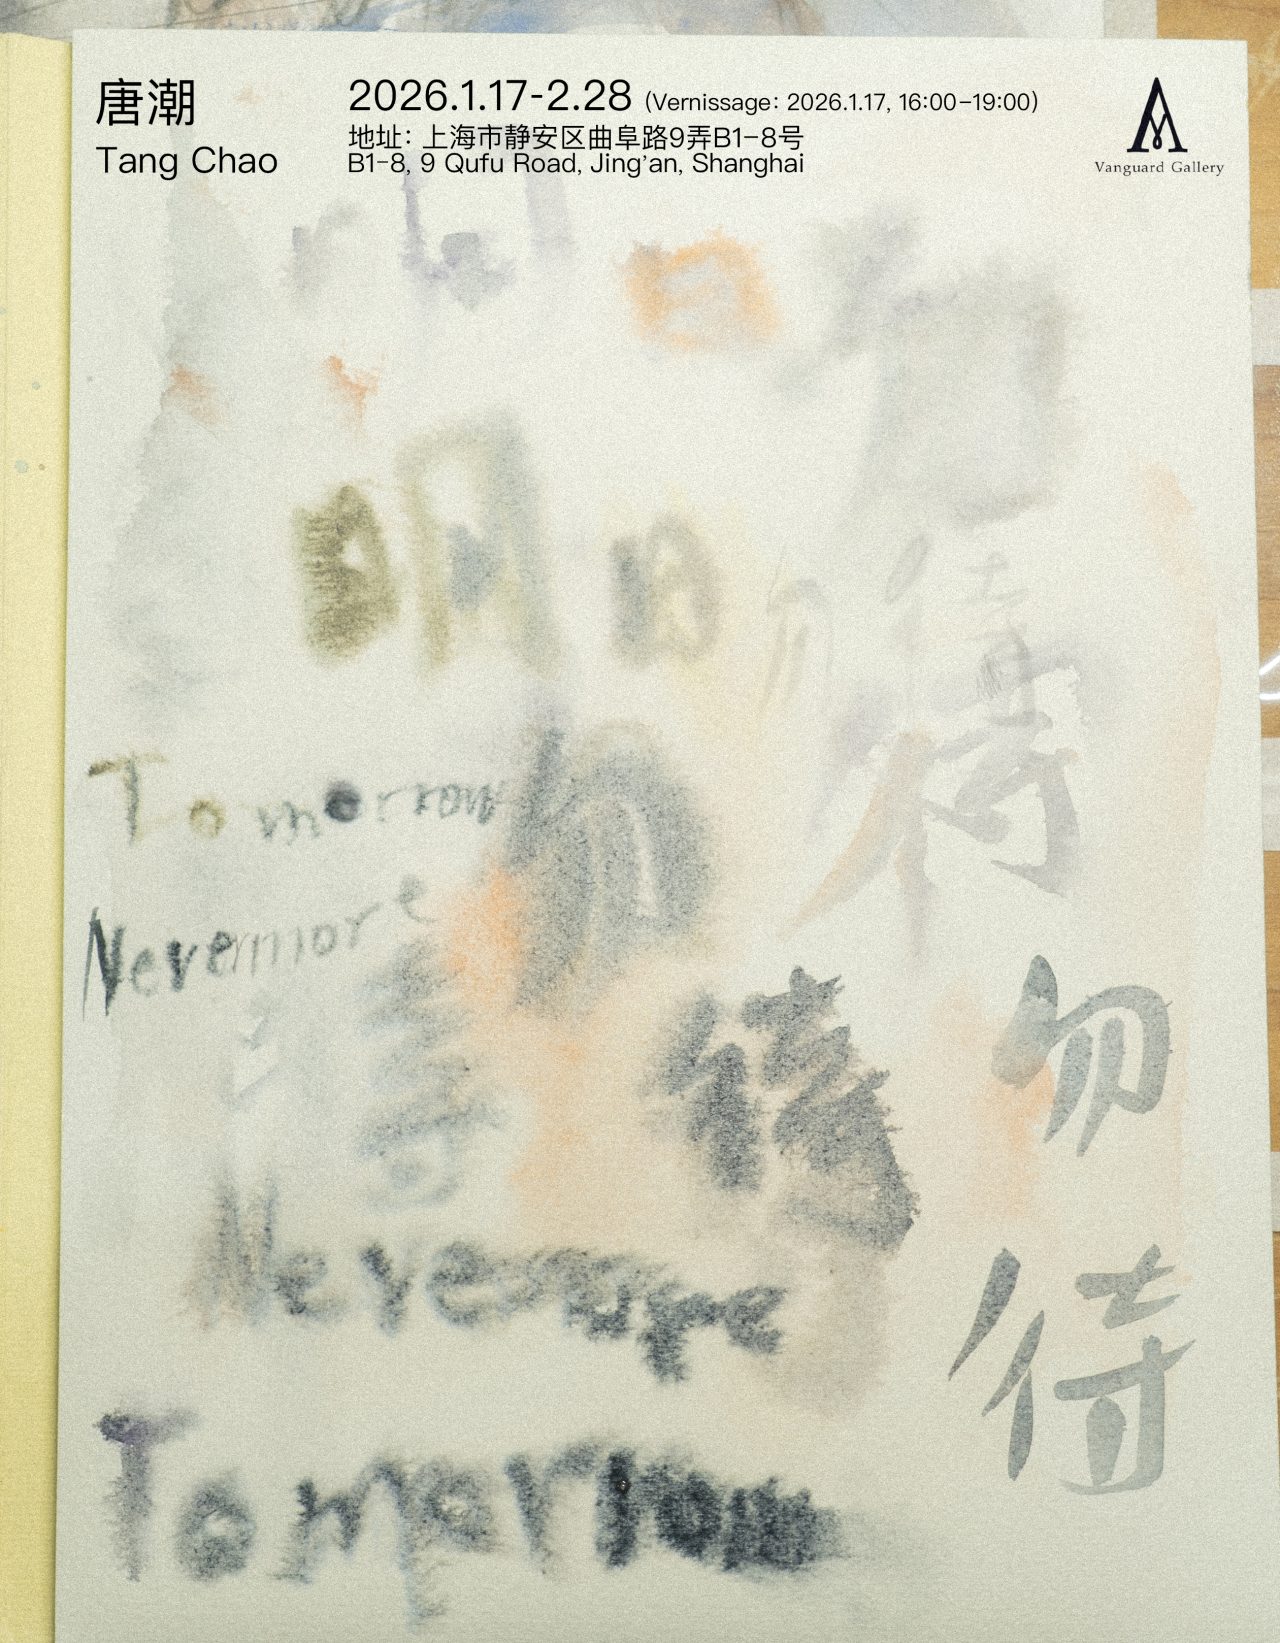 唐潮
Tang Chao
2026.1.17-2.28 (Vernissage: 2026.1.17, 16:00-19:00)
地址: 上海市静安区曲阜路9弄B1-8号
B1-8, 9 Qufu Road, Jing'an, Shanghai
Vanguard Gallery
明日
勿
待
Tomorrow
Nevermore
勿
待
勿
待
Nevermore
Tomorrow